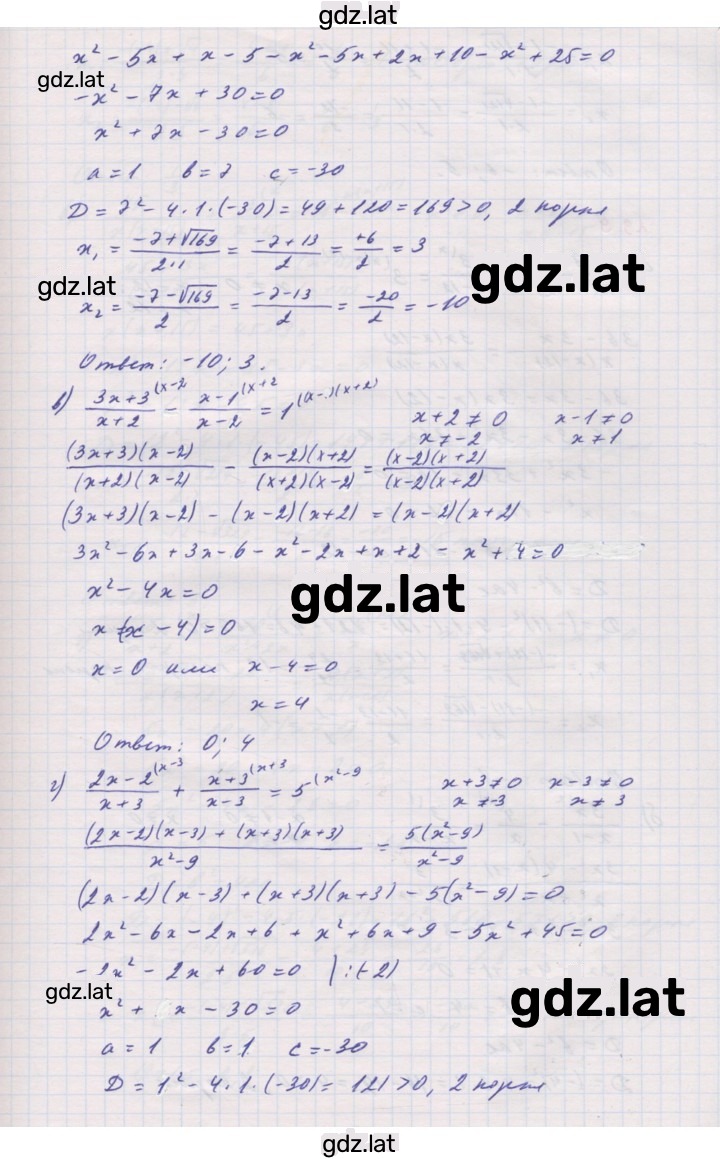 gdz.lat
x² - 5x + x - 5 - x² - 5x + 2x + 10 - x² + 25 = 0
gdz.lat
-x² - 7x + 30 = 0
x² + 7x - 30 = 0
a = 1 b = 7 c = -30
D = 7² - 4·1·(-30) = 49 + 120 = 169 > 0, 2 корня
x₁ = (-7+√169)/(2·1) = (-7+13)/2 = +6/2 = 3
gdz.lat
gdz.lat
x₂ = (-7-√169)/2 = (-7-13)/2 = -20/2 = -10
Ответ: -10; 3.
в) (3x+3)/(x+2) ⁽ˣ⁻² - (x-1)/(x-2) ⁽ˣ⁺² = 1 ⁽ˣ⁻⁾⁽ˣ⁺²⁾ x+2≠0 x-1≠0
x≠-2 x≠1
(3x+3)(x-2)/(x+2)(x-2) - (x-2)(x+2)/(x+2)(x-2) = (x-2)(x+2)/(x-2)(x+2)
(3x+3)(x-2) - (x-2)(x+2) = (x-2)(x+2)
3x² - 6x + 3x - 6 - x² - 2x + x + 2 - x² + 4 = 0
x² - 4x = 0
gdz.lat
x(x - 4) = 0
x = 0 или x - 4 = 0
x = 4
Ответ: 0; 4
г) (2x-2)/(x+3) ⁽ˣ⁻³ + (x+3)/(x-3) ⁽ˣ⁺³ = 5 ⁽ˣ²⁻⁹ x+3≠0 x-3≠0
x≠-3 x≠3
((2x-2)(x-3) + (x+3)(x+3))/(x²-9) = 5(x²-9)/(x²-9)
(2x-2)(x-3) + (x+3)(x+3) - 5(x²-9) = 0
2x² - 6x - 2x + 6 + x² + 6x + 9 - 5x² + 45 = 0
-2x² - 2x + 60 = 0 |:(-2)
gdz.lat
gdz.lat
x² + x - 30 = 0
a = 1 b = 1 c = -30
D = 1² - 4·1·(-30) = 121 > 0, 2 корня
gdz.lat